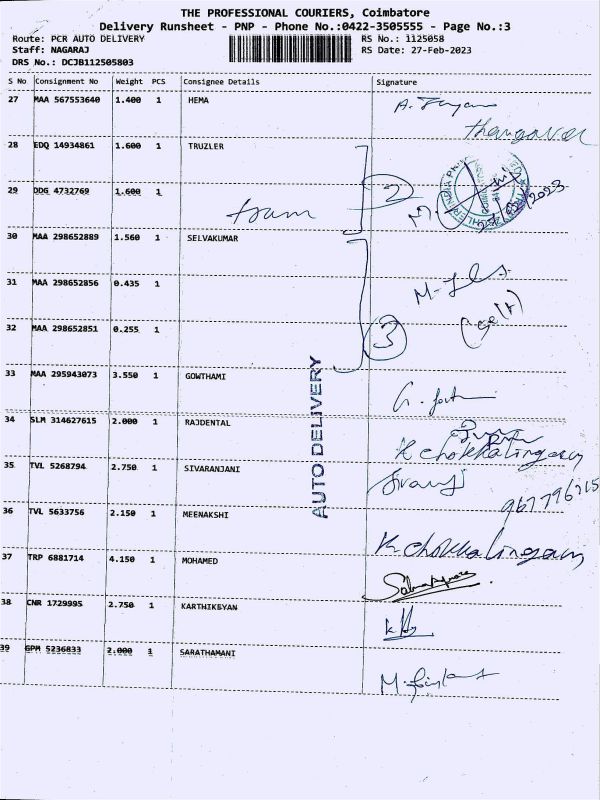 THE PROFESSIONAL COURIERS, Coimbatore
Delivery Runsheet - PNP - Phone No.:0422-3505555 - Page No.:3
Route: PCR AUTO DELIVERY
RS No.: 1125058
Staff: NAGARAJ
RS Date: 27-Feb-2023
DRS No.: DCJB112505803
S No Consignment No Weight PCS Consignee Details Signature
27 MAA 567553640 1.400 1 HEMA
thangavel
28 EDQ 14934861 1.600 1 TRUZLER
29 DDG 4732769 1.600 1
2
30 MAA 298652889 1.560 1 SELVAKUMAR
31 MAA 298652856 0.435 1
32 MAA 298652851 0.255 1
(self)
3
33 MAA 295943073 3.550 1 GOWTHAMI
AUTO DELIVERY
34 SLM 314627615 2.000 1 RAJDENTAL
K chokkalingam
35 TVL 5268794 2.750 1 SIVARANJANI
36 TVL 5633756 2.150 1 MEENAKSHI
K chokkalingam
37 TRP 6881714 4.150 1 MOHAMED
38 CNR 1729995 2.750 1 KARTHIKEYAN
39 GPM 5236833 2.000 1 SARATHAMANI